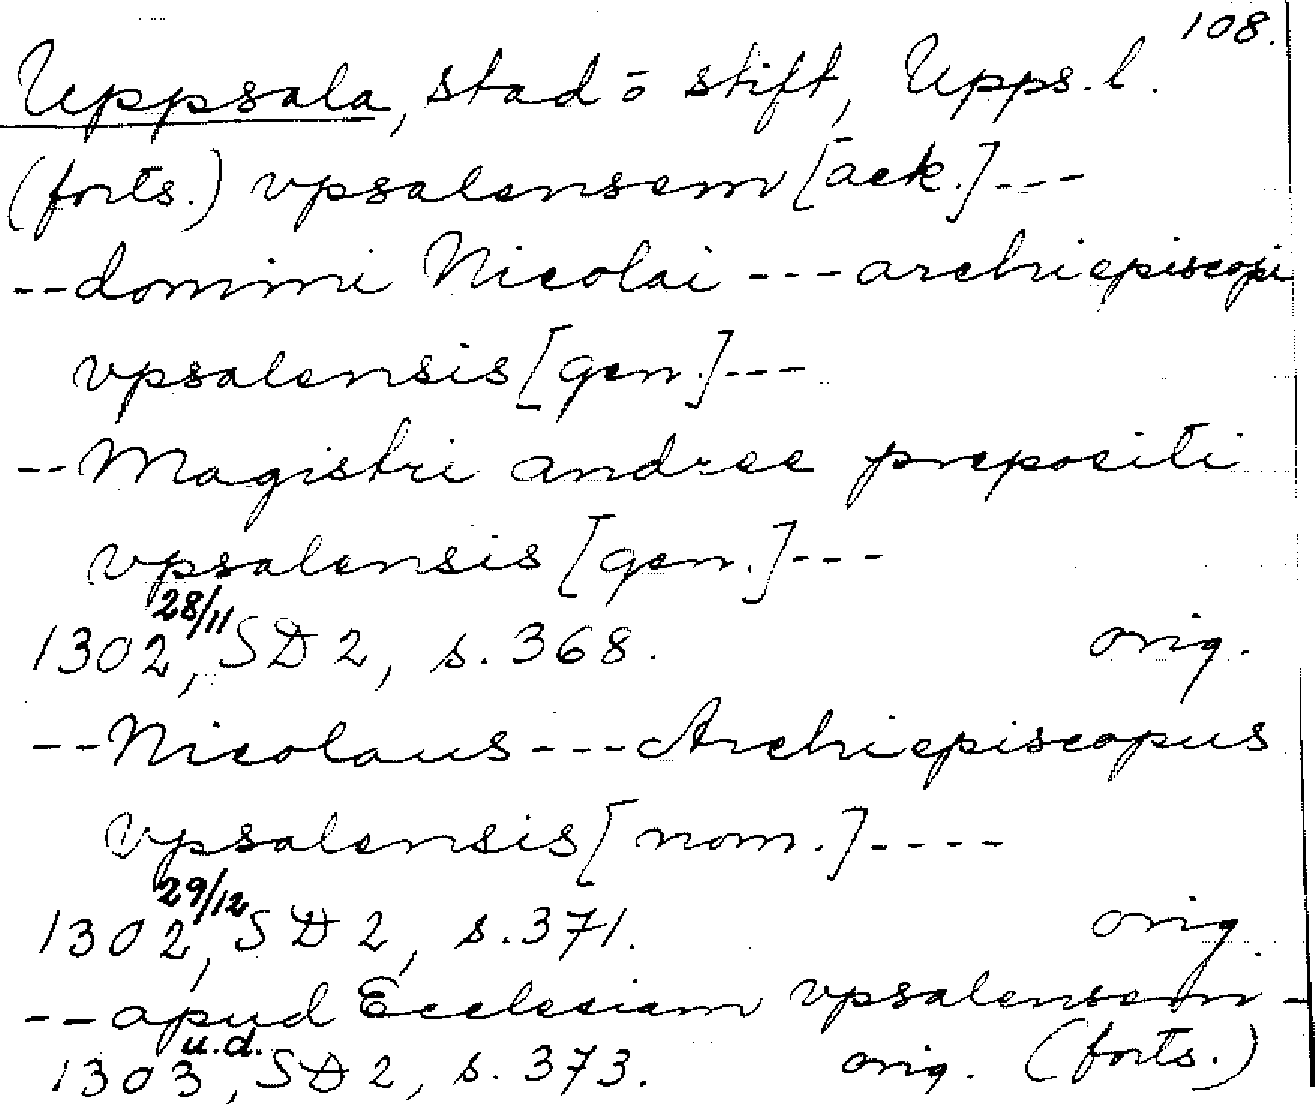 108.
Uppsala, stad o stift, Upps.l.
(forts.) vpsalensem [ack.]---
--domini Nicolai ---archiepiscopi
vpsalensis [gen.]---
--Magistri andree prepositi
vpsalensis [gen.]---
28/11
1302, SD 2, s. 368. orig.
--Nicolaus---Archiepiscopus
Vpsalensis [nom.]----
29/12
1302, SD 2, s. 371. orig.
--apud Ecclesiam vpsalensem-
u.d.
1303, SD 2, s. 373. orig. (forts.)